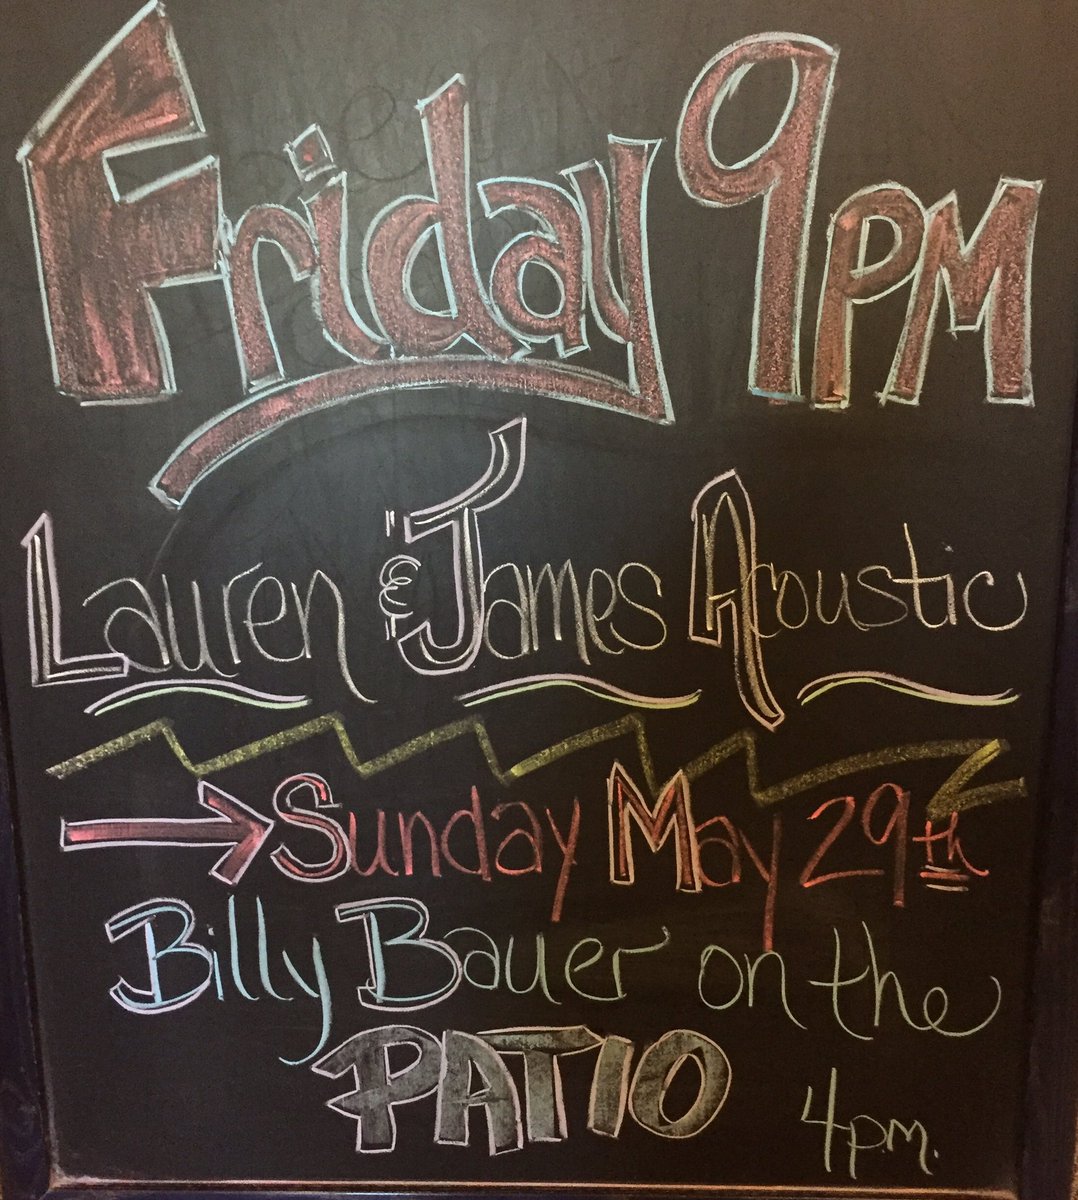 Friday 9PM
Lauren & James Acoustic
Sunday May 29th
Billy Bauer on the
PATIO
4pm.